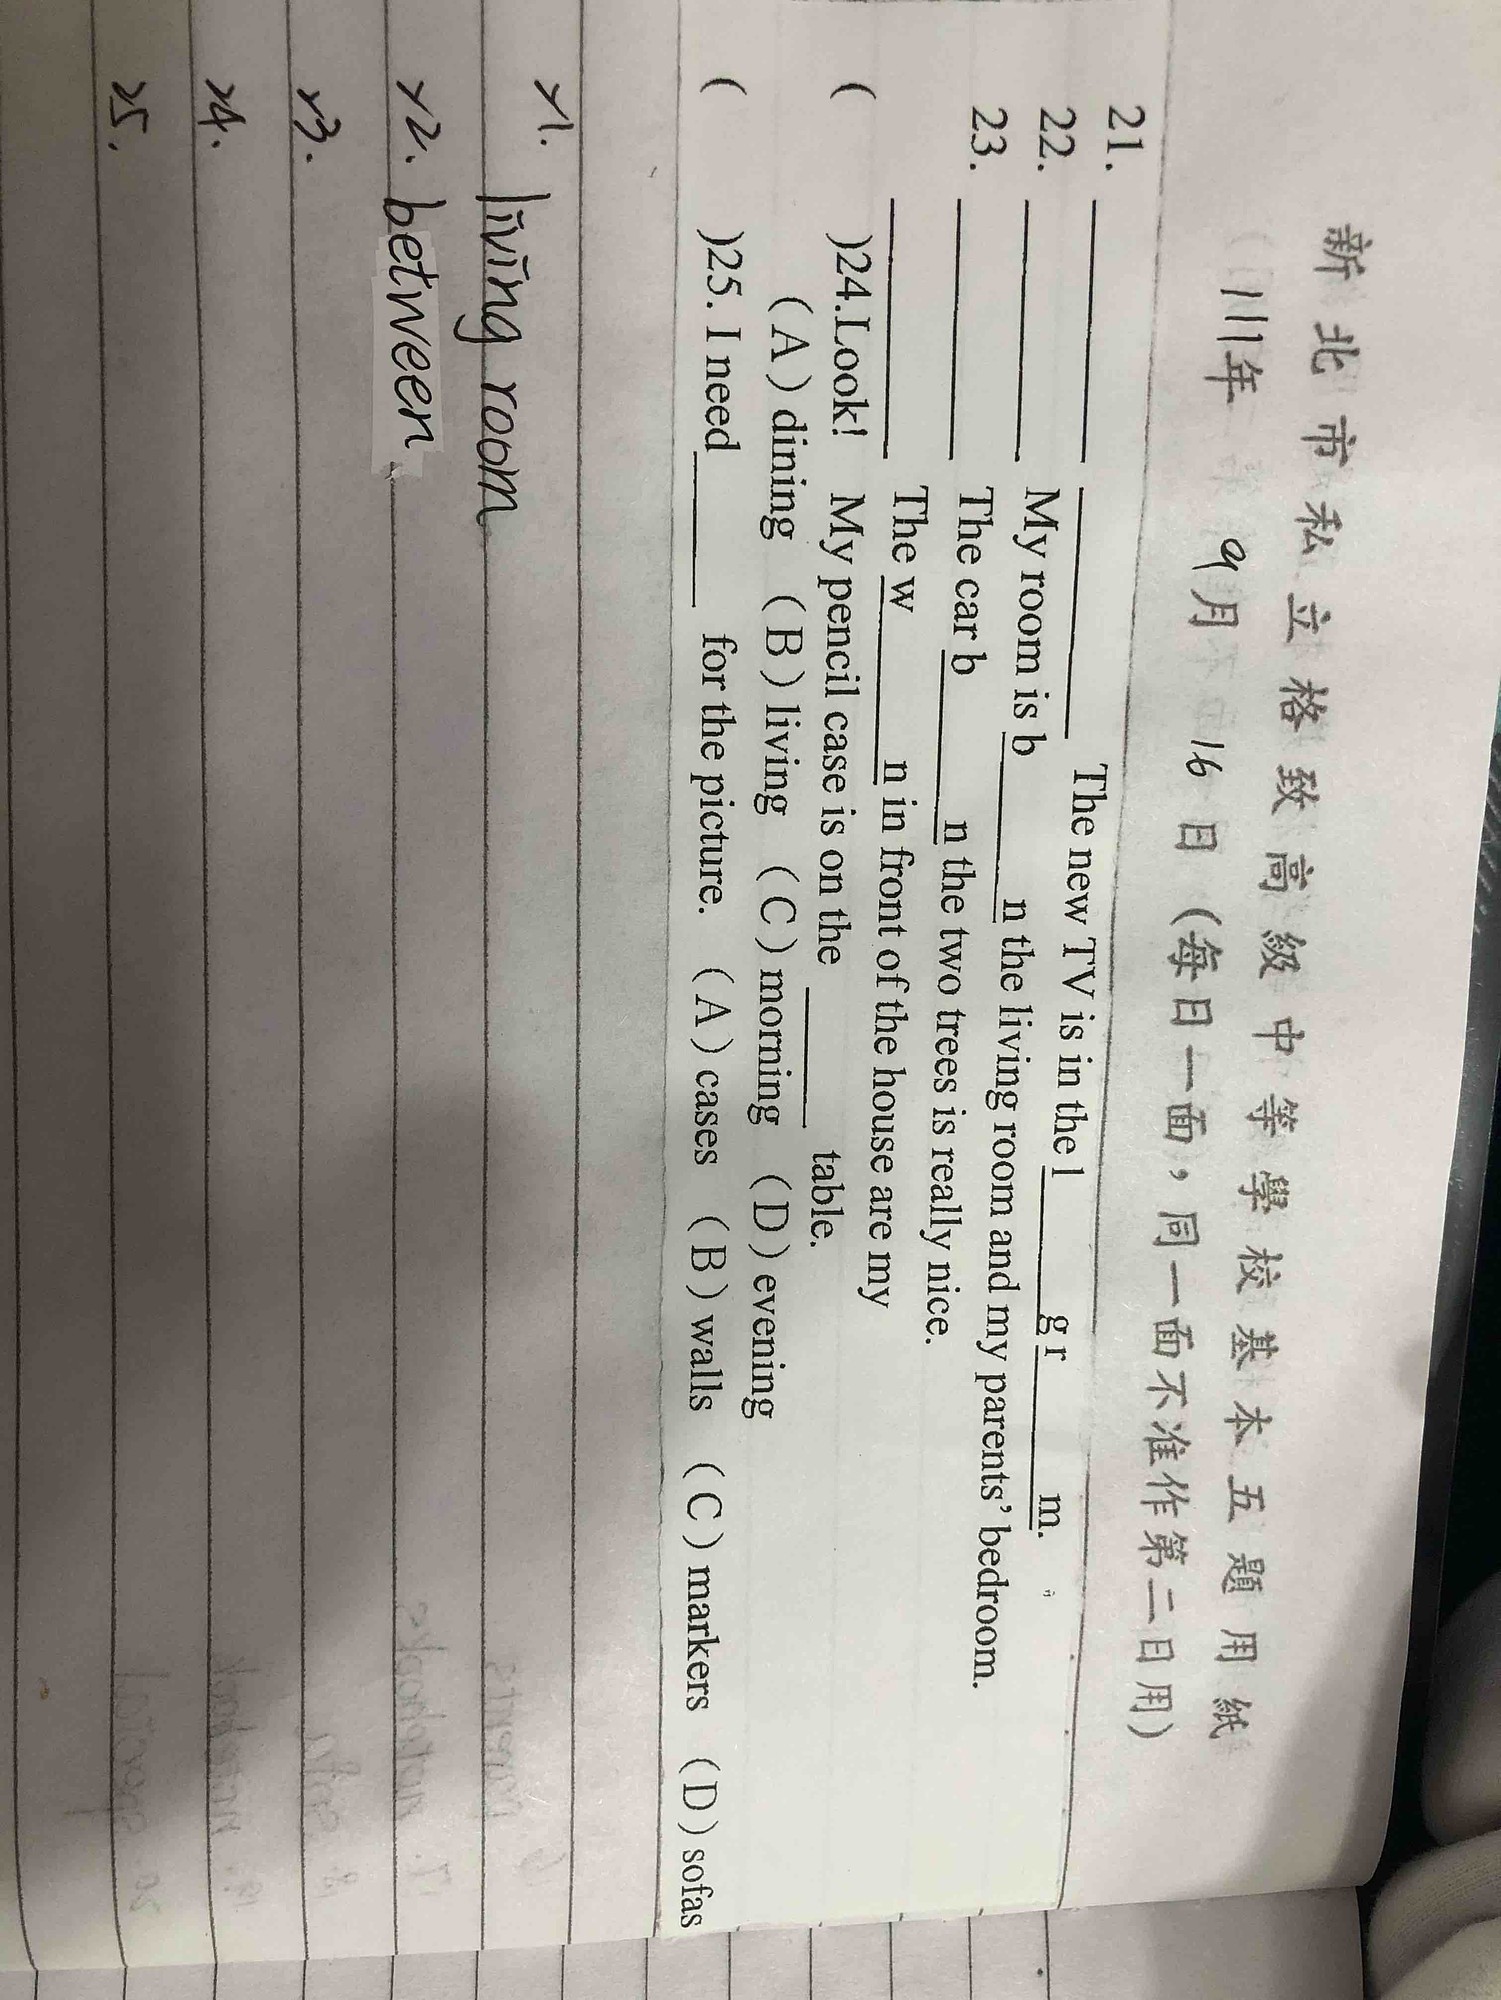 新北市私立格致高級中等學校基本五題用紙
（111年 9月 16日（每日一面，同一面不准作第二日用）
21. ______ ______ The new TV is in the l____g r____m.
22. ______ My room is b____n the living room and my parents’ bedroom.
23. ______ The car b____n the two trees is really nice.
______ The w____n in front of the house are my
(   )24.Look!  My pencil case is on the ______ table.
(A) dining (B) living (C) morning (D) evening
(   )25. I need ______ for the picture. (A) cases (B) walls (C) markers (D) sofas
21. living room
22. between
23.
24.
25.